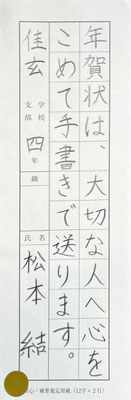 年賀状は、大切な人へ心を
こめて手書きで送ります。
佳玄
支部
学校
四年
級
氏名
松本 結
心・硬筆規定用紙(12字×2行)